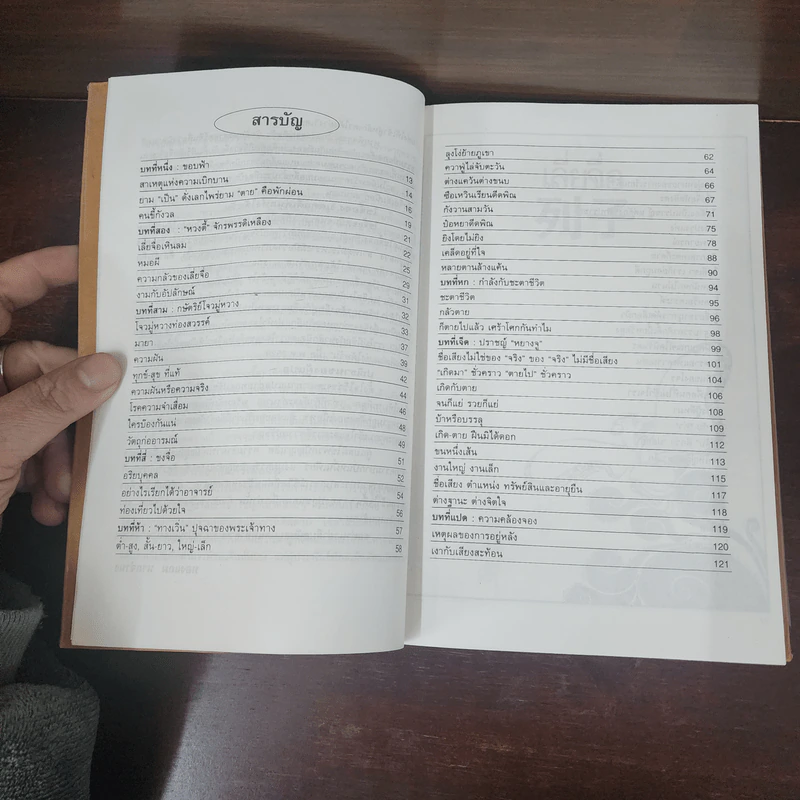 สารบัญ
บทที่หนึ่ง : ขอบฟ้า
สาเหตุแห่งความเบิกบาน 13
ยาม "เป็น" ดั่งเลกไพร่ยาม "ตาย" คือพักผ่อน 14
คนขี้กังวล 16
บทที่สอง : "หวงตี้" จักรพรรดิเหลือง 19
เลี่ยจื่อเหินลม 21
หมอผี 22
ความกลัวของเลี่ยจื่อ 25
งามกับอัปลักษณ์ 29
บทที่สาม : กษัตริย์โจวมู่หวาง 31
โจวมู่หวางท่องสวรรค์ 32
มายา 33
ความฝัน 37
ทุกข์-สุข ที่แท้ 39
ความฝันหรือความจริง 42
โรคความจำเสื่อม 44
ใครป้องกันแน่ 46
วัตถุก่ออารมณ์ 48
บทที่สี่ : ชงจื่อ 49
อริยบุคคล 51
อย่างไรเรียกได้ว่าอาจารย์ 52
ท่องเที่ยวไปด้วยใจ 54
บทที่ห้า : "ทางเวิ่น" ปุจฉาของพระเจ้าทาง 56
ต่ำ-สูง, สั้น-ยาว, ใหญ่-เล็ก 57
58
ลุงโง่ย้ายภูเขา 62
ควาฟู่ไล่จับตะวัน 64
ต่างแคว้นต่างขนบ 66
ซือเหวินเรียนดีดพิณ 67
กังวานสามวัน 71
ป๋อหยาดีดพิณ 75
ยิงโดยไม่ยิง 78
เคล็ดอยู่ที่ใจ 88
หลายดาบล้างแค้น 90
บทที่หก : กำลังกับชะตาชีวิต 94
ชะตาชีวิต 95
กลัวตาย 96
ก็ตายไปแล้ว เศร้าโศกกันทำไม 98
บทที่เจ็ด : ปราชญ์ "หยางจู" 99
ชื่อเสียงไม่ใช่ของ "จริง" ของ "จริง" ไม่มีชื่อเสียง 101
"เกิดมา" ชั่วคราว "ตายไป" ชั่วคราว 104
เกิดกับตาย 106
จนก็แย่ รวยก็แย่ 108
บ้าหรือบรรลุ 109
เกิด-ตาย ฝืนมิได้ดอก 112
ขนหนึ่งเส้น 113
งานใหญ่ งานเล็ก 115
ชื่อเสียง ตำแหน่ง ทรัพย์สินและอายุยืน 117
ต่างฐานะ ต่างจิตใจ 118
บทที่แปด : ความคล้องจอง 119
เหตุผลของการอยู่หลัง 120
เงากับเสียงสะท้อน 121